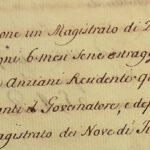 one un Magistrato di
gni 6 mesi sene estragg
Anziani Residenti
nti il Governatore, e dep
agistrato dei Nove di